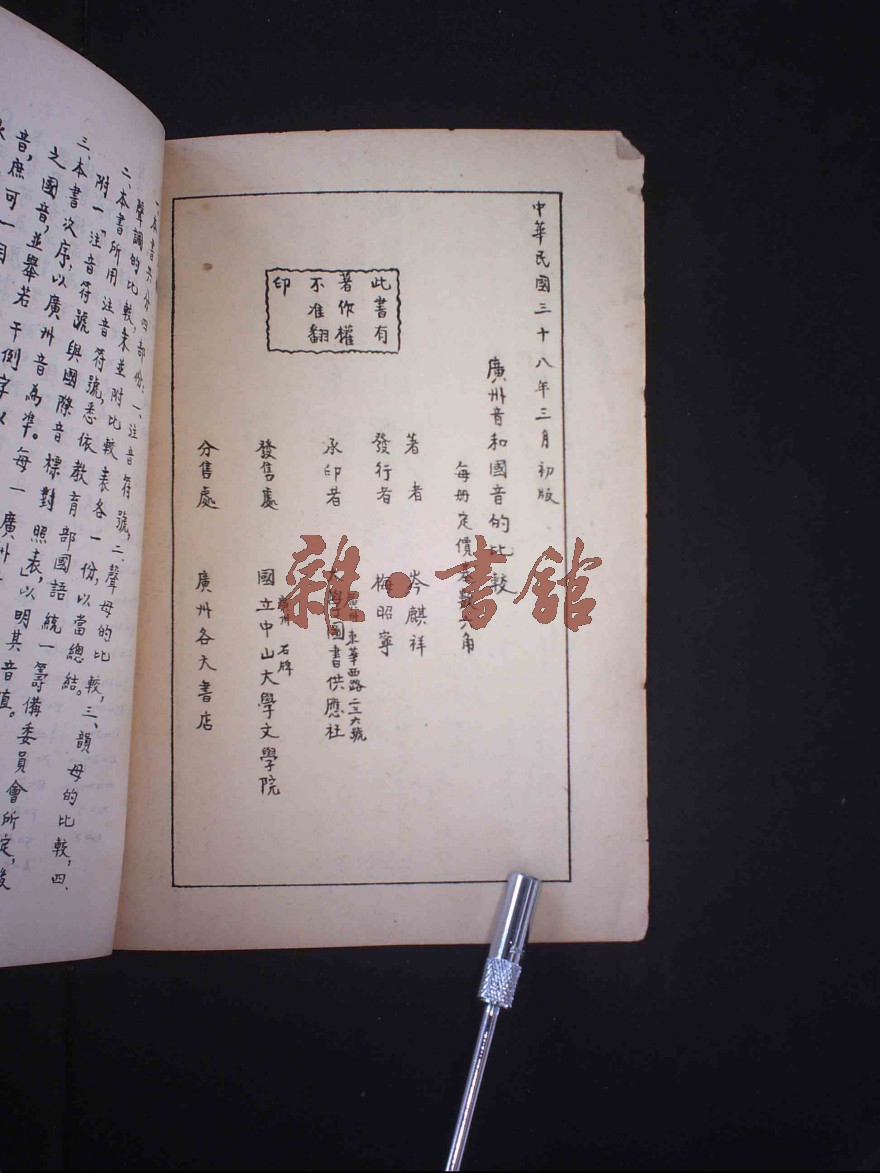 中華民國三十八年三月初版
廣州音和國音的比較
每册定價基數六角
著者 岑麒祥
發行者 梅昭寧
廣州東華西路二三六號
承印者 大學圖書供應社
廣州石牌
發售處 國立中山大學文學院
分售處 廣州各大書店
此書有
著作權
不准翻
印
雜·書館
一、本書共分四部份：一、注音符號，二、聲母的比較，三、韻母的比較，四、
聲調的比較，末並附比較表各一份，以當總結。
二、本書所用注音符號，悉依教育部國語統一籌備委員會所定，
附一「注音符號與國際音標對照表」以明其音值。
三、本書次序，以廣州音為準。每一廣州
之國音，並舉若干例字以
音，庶可一目